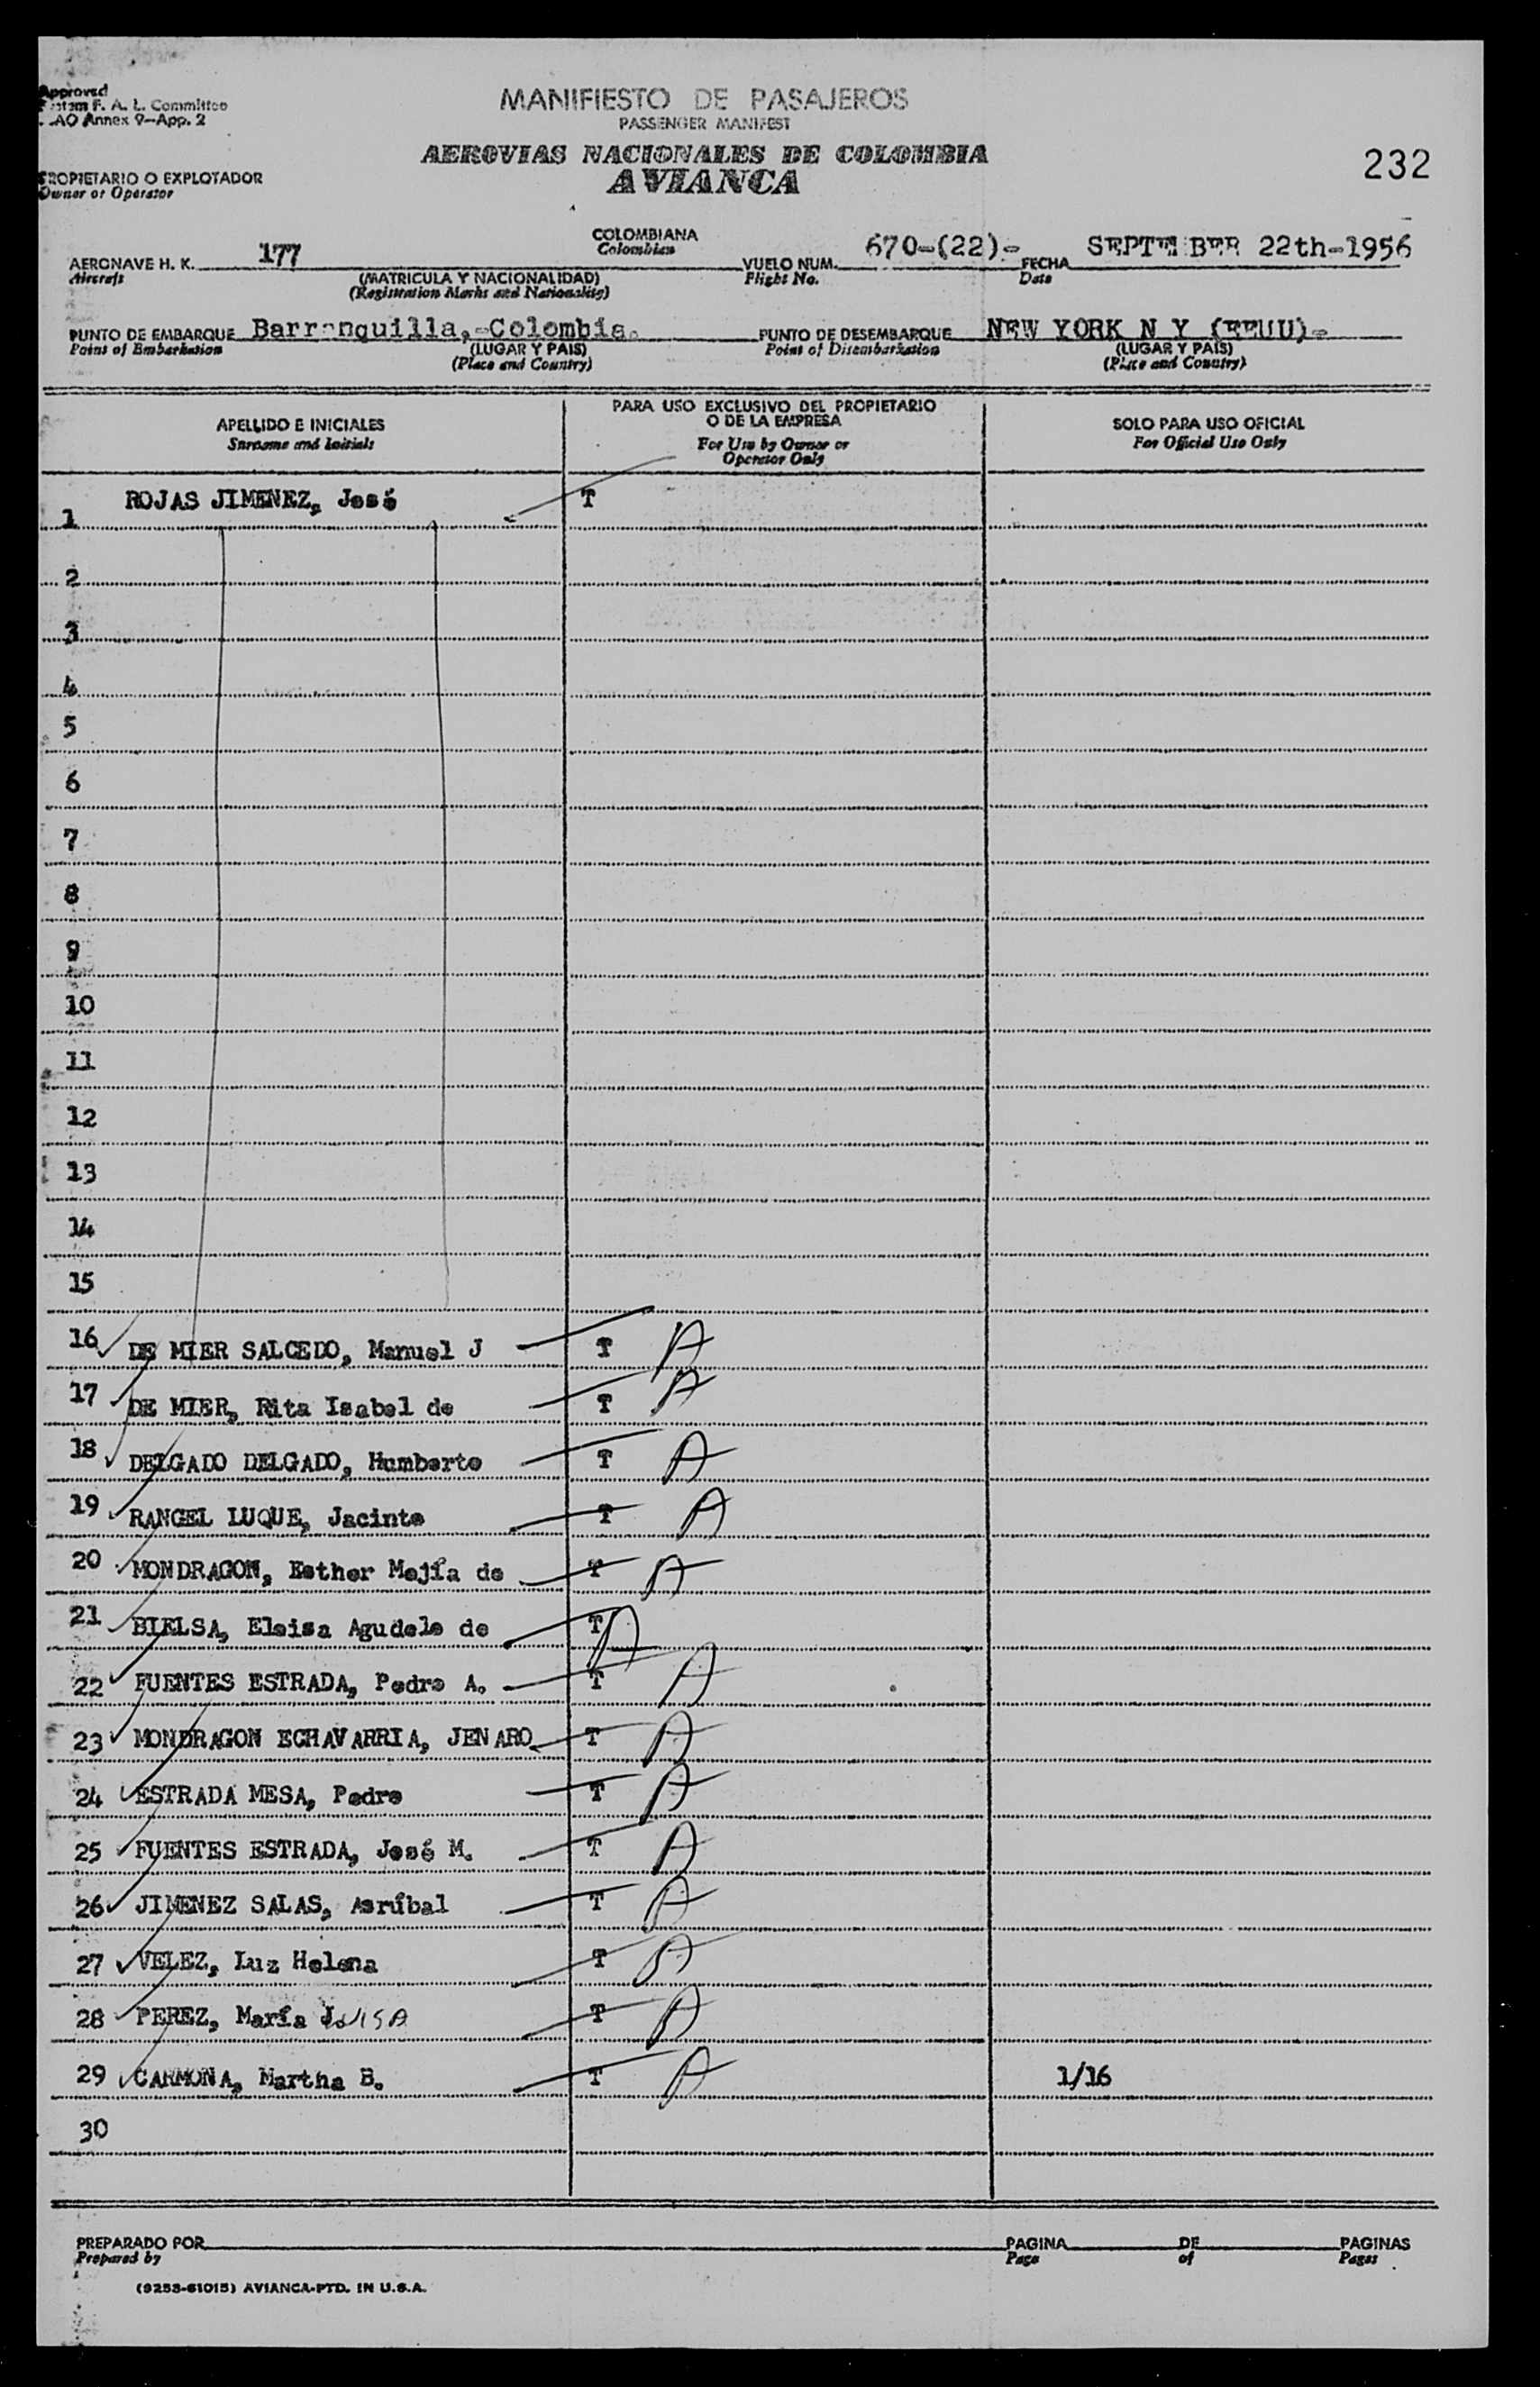 Approved
F. A. L. Committee
Annex 9-App. 2
MANIFIESTO DE PASAJEROS
PASSENGER MANIFEST
AEROVIAS NACIONALES DE COLOMBIA
AVIANCA
232
PROPIETARIO O EXPLOTADOR
Owner or Operator
AERONAVE H. K. 177 COLOMBIANA VUELO NUM. 670-(22)- FECHA SEPTE BER 22th-1956
Aircraft Colombian Flight No. Date
(MATRICULA Y NACIONALIDAD)
(Registration Marks and Nationality)
PUNTO DE EMBARQUE Barranquilla,-Colombia. PUNTO DE DESEMBARQUE NEW YORK N Y (EEUU)-
Point of Embarkation (LUGAR Y PAIS) Point of Disembarkation (LUGAR Y PAIS)
(Place and Country) (Place and Country)
APELLIDO E INICIALES
Surname and Initials
PARA USO EXCLUSIVO DEL PROPIETARIO
O DE LA EMPRESA
For Use by Owner or
Operator Only
SOLO PARA USO OFICIAL
For Official Use Only
1 ROJAS JIMENEZ, José T
2
3
4
5
6
7
8
9
10
11
12
13
14
15
16 DE MIER SALCEDO, Manuel J T A
17 DE MIER, Rita Isabel de T A
18 DELGADO DELGADO, Humberto T A
19 RANGEL LUQUE, Jacinto T A
20 MONDRAGON, Esther Mejía de T A
21 BIELSA, Eloisa Agudelo de T A
22 FUENTES ESTRADA, Pedro A. T A
23 MONDRAGON ECHAVARRIA, JENARO T A
24 ESTRADA MESA, Pedro T A
25 FUENTES ESTRADA, José M. T A
26 JIMENEZ SALAS, Asrúbal T A
27 VELEZ, Luz Helena T A
28 PEREZ, María LUISA T A
29 CARMONA, Martha B. T A 1/16
30
PREPARADO POR PAGINA DE PAGINAS
Prepared by Page of Pages
(9253-61015) AVIANCA-PTD. IN U.S.A.